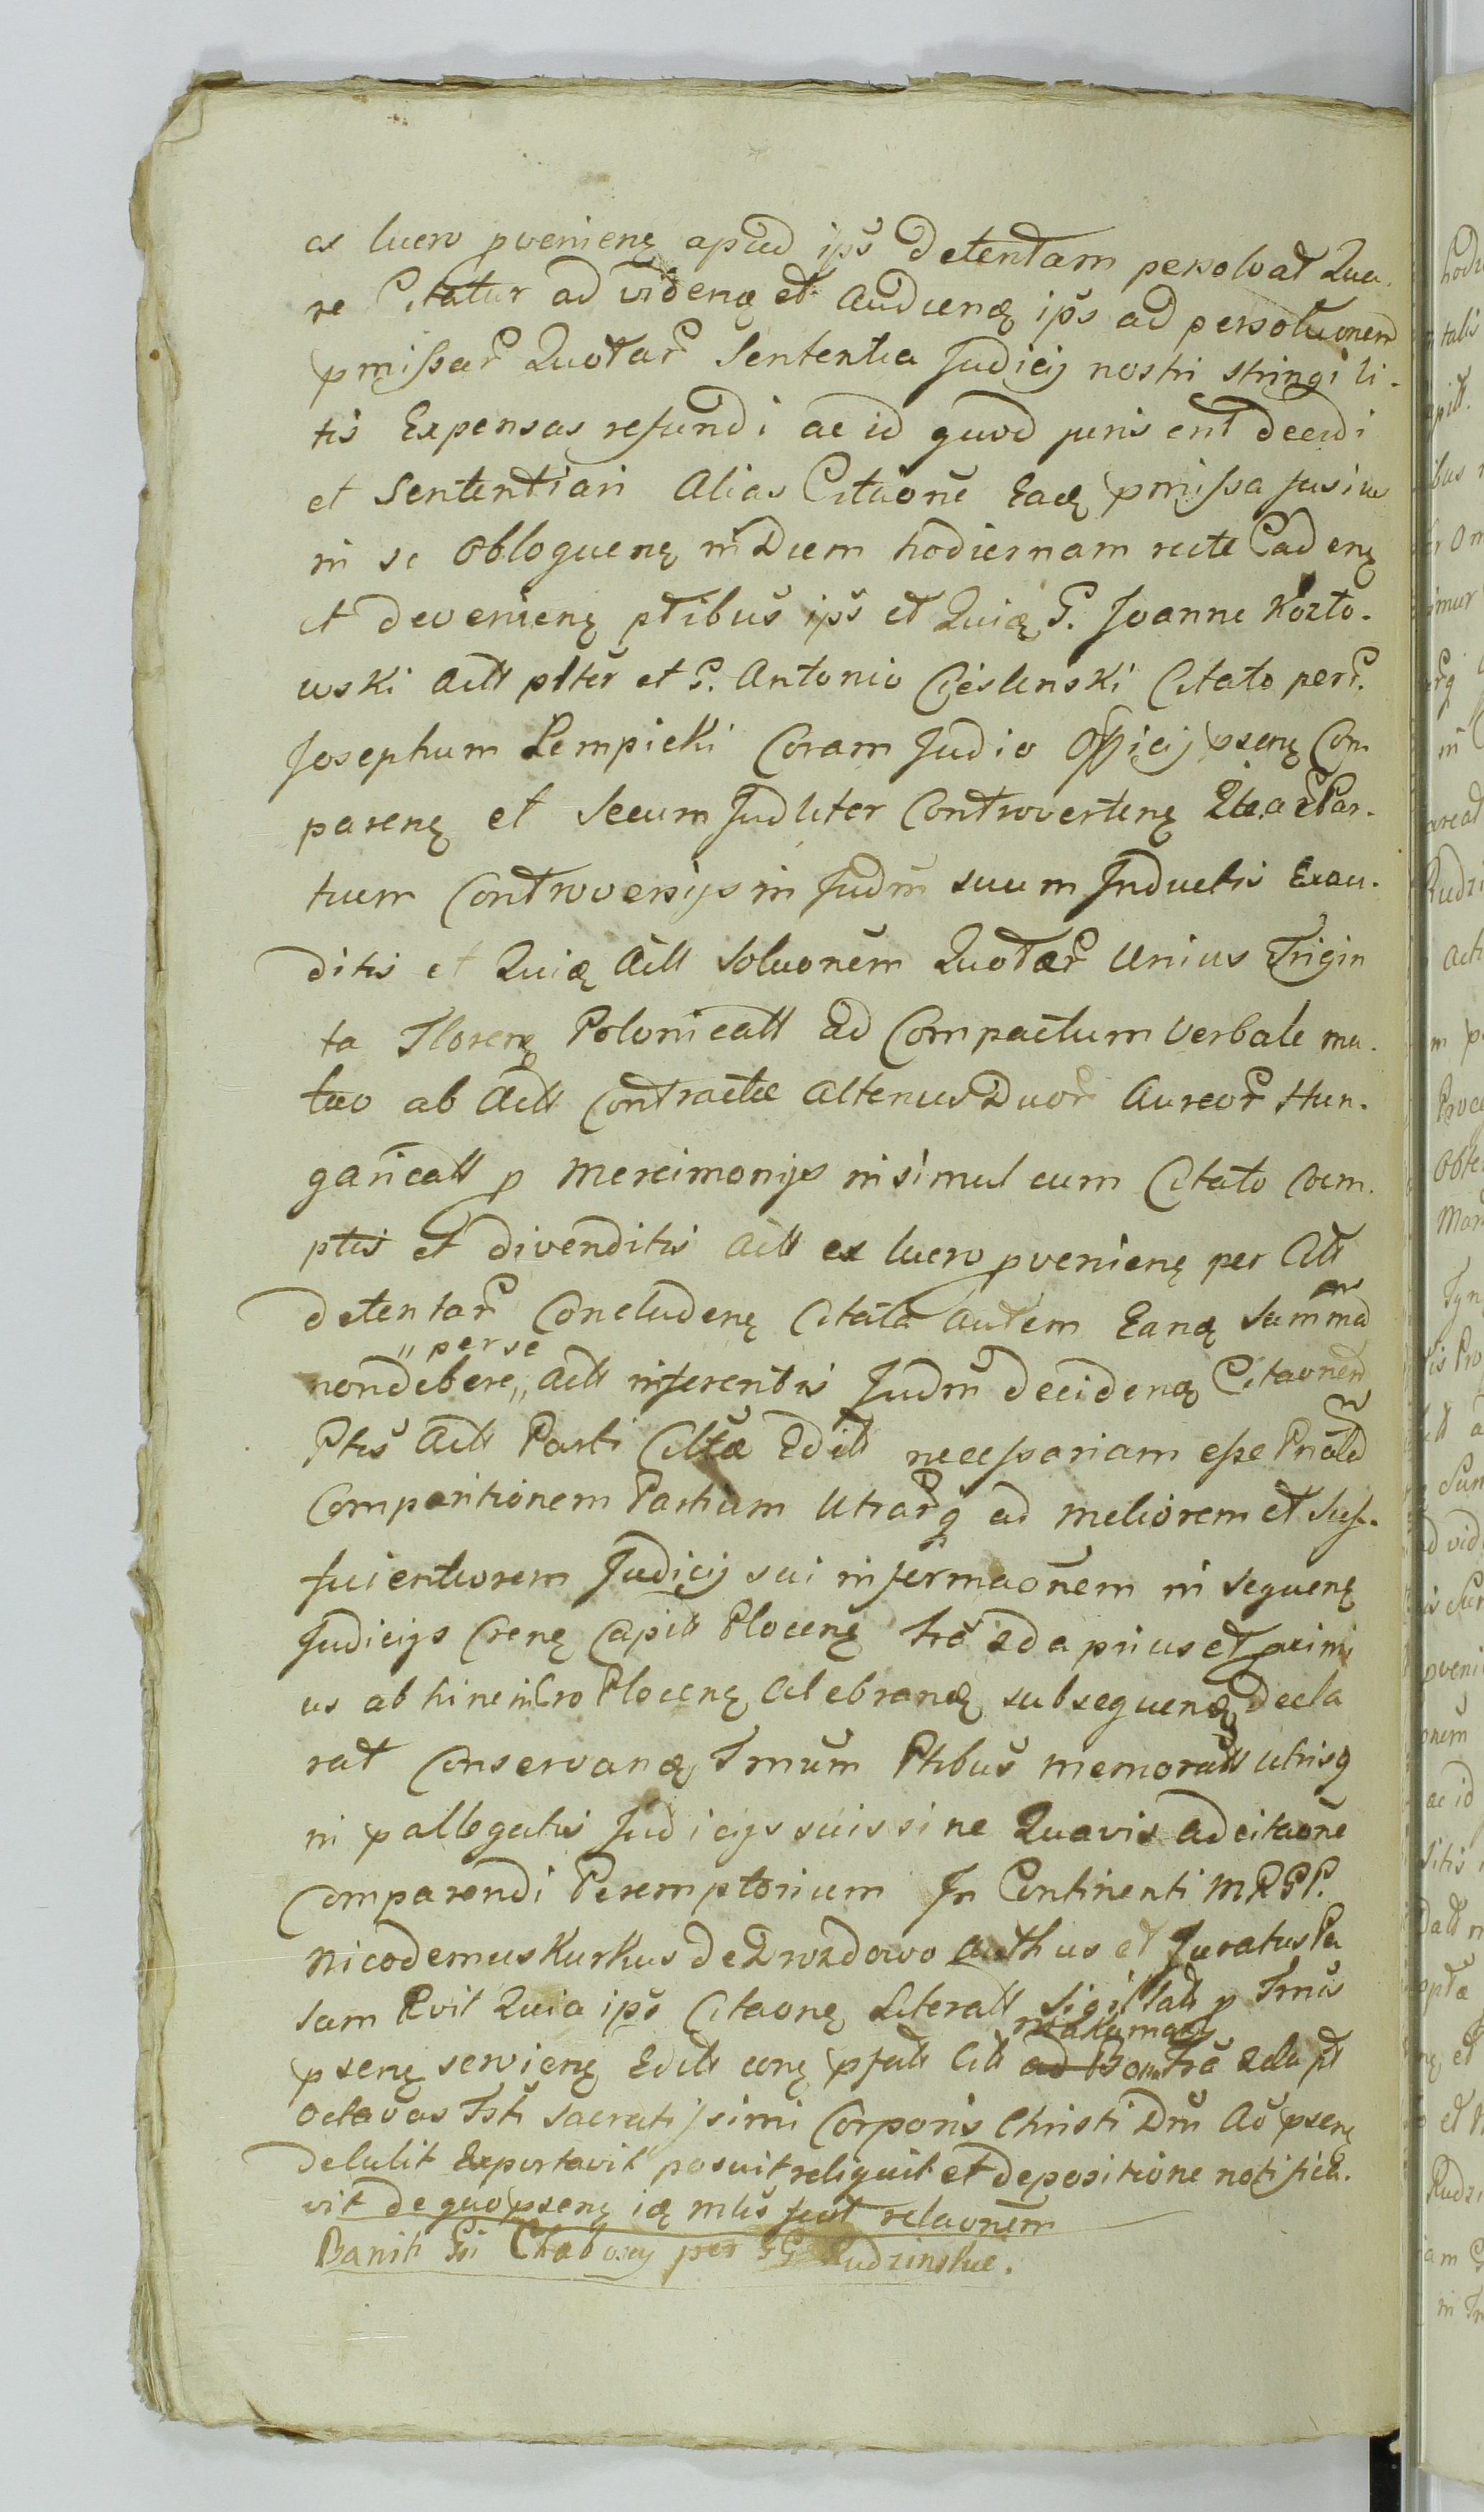 as lucro pvenienę apud ips̃ detentam persolvat Qua.
re Citatur ad videnę et Audienę ips̃ ad persolutionem
pmissar̃ Quotar̃ Sententia Judicij nostri stringi li.
tis Expensas refundi ac id quod juris erit decerni
et Sententiari Alias Citaōne Eadę pmissa fusius
in se obloquenę in Diem hodiernam recte Cadenę
et devenienę ptibus̃ ips̃ et Quidę G. Joanne Kozło.
wski Actt plter̃ et G. Antonio Cieslinski Citato per G.
Josephum Łempicki Coram Judio Officij psenę Com
parenę et Secum Judliter Controvertenę Par.
tium Controversijs in Judm̃ suum Inductis Exau.
ditis et Quidę Actt Solvonem̃ Quotar̃ Unius Trigin
ta Florenę Polonicatt ad Compactum Verbale mu.
tuo ab Actt Contractæ Alterius Duor̃ Aureor̃ Hun.
garicatt p Mercimonijs insimul cum Citato Coem.
ptis et divenditis Actt ex lucro pvenienę per Citt
detentar̃ Concludenę Citata autem Eandę Summam
per se
non debere Actt inferentis Judm̃ decidendę Citaonem
Ptis̃ Actt Parti Citt̃æ Edett necessariam esse Prsalem
Comparitionem Partium Utrarq̨ ad meliorem et Suf.
ficientiorem Judicij sui informaonem̃ in sequenę
Judicijs Crenę Capitt Plocenę fr̃a 2da prius et pximi
us ab hinc in Cro Plocenę Celebrandę subsequendę Decla
rat Conservandę Trnum̃ Ptibus̃ memoratt utrisq̨
in pallegatis Judicijs suis sine Quavis adcitaone
Comparendi Peremptorium In Continenti MRGP.
Nicodemus Kurkus de Drozdowo authus et Juratus Pa
lam Rvit Quia ips̃ Citaonę Literatt Sigillatt p Trnis̃
psenę servienę Edett conę pfatt Citt ad Bona fr̃a 2da pt
Octavas Fsti Sacratissimi Corporis Christi Dm̃ Ao psenę
detulit Exportavit posuit reliquit et depositione notifica.
vit de quo psenę idę mlis̃ fecit relaonem
Banit Gsi Chabowy per GG Rudzinskie.